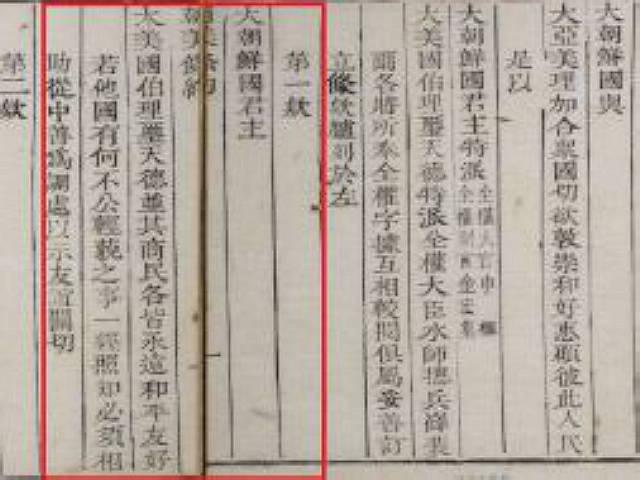 大朝鮮國與
大亞美理加合衆國切欲敦崇和好惠顧彼此人民
是以
大朝鮮國君主特派全權大官申櫶全權副官金宏集
大美國伯理璽天德特派全權大臣水師摠兵薛斐
爾各將所奉全權字據互相較閱俱屬妥善訂
立條欵臚列於左
第一欵
大朝鮮國君主
朝美條約
一
大美國伯理璽天德並其商民各皆永遠和平友好
若他國有何不公輕藐之事一經照知必須相
助從中善爲調處以示友誼關切
第二欵